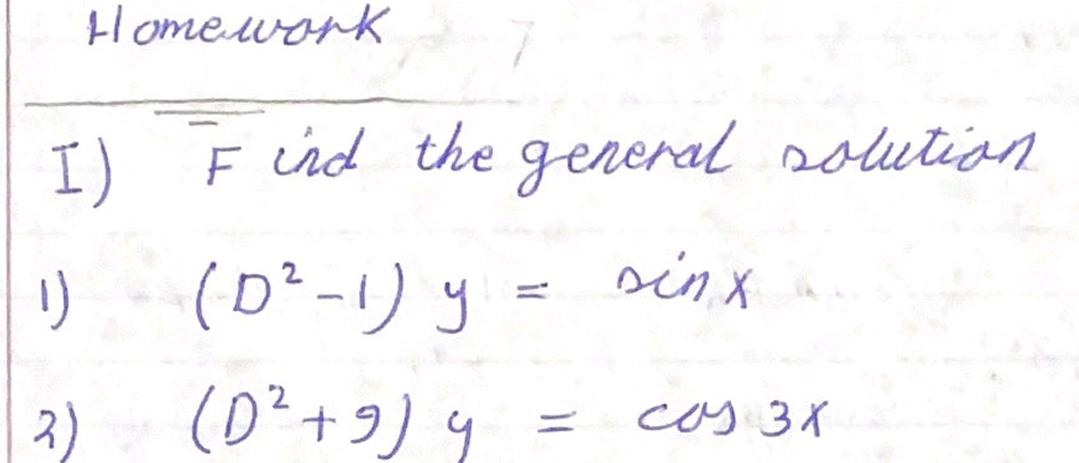 Homework
I) Find the general solution
1) (D² - 1) y = sin x
2) (D² + 9) y = cos 3x